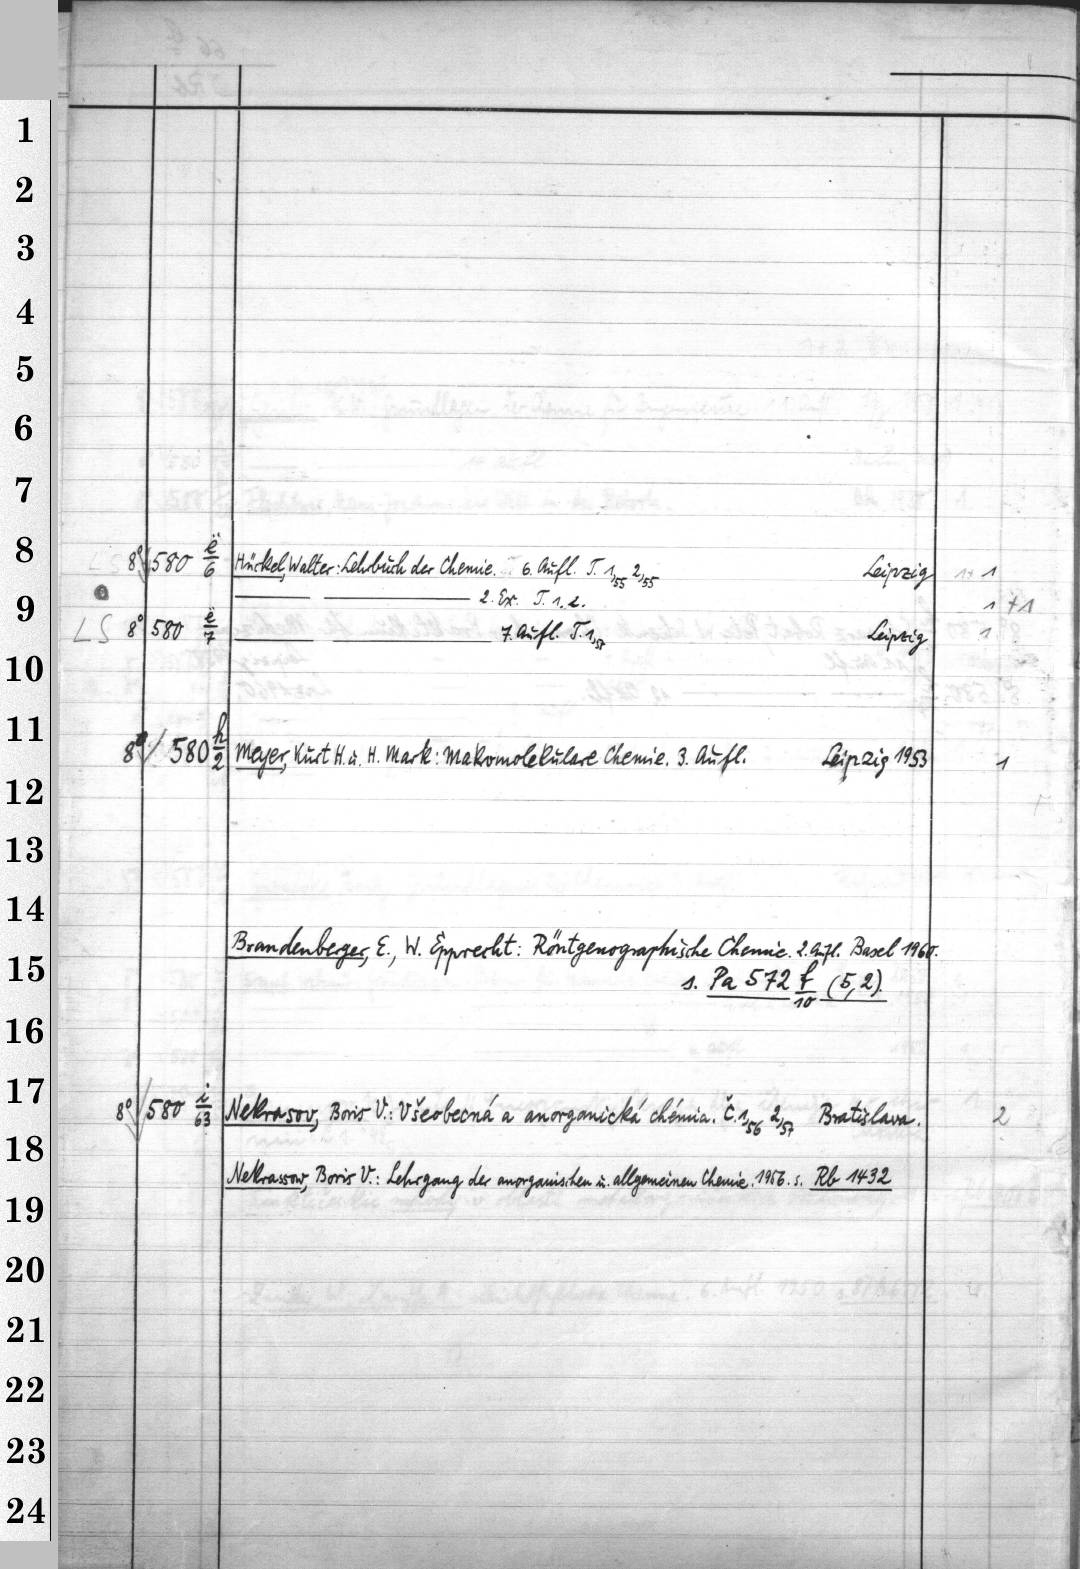 1
2
3
4
5
6
7
8
8° 580 ë/6 Hückel, Walter: Lehrbuch der Chemie. 6. Aufl. T. 1,55 2,55 Leipzig 1+1
9
——— ——— 2. Ex. T. 1. 2. 1 +1
LS 7 8° 580 ë/7 ——— ——— 7. Aufl. T. 1,57 Leipzig 1
10
11
8° 580 h/2 Meyer, Kurt H. u. H. Mark: Makromolekulare Chemie. 3. Aufl. Leipzig 1953 1
12
13
14
Brandenberger, E., W. Epprecht: Röntgenographische Chemie. 2. Aufl. Basel 1960.
15
s. Pa 572 f/10 (5,2).
16
17
8° 580 i/63 Nekrasov, Boris V.: Všeobecná a anorganická chémia. Č. 1,56 2,57 Bratislava. 2
18
Nekrassow, Boris V.: Lehrgang der anorganischen u. allgemeinen Chemie. 1956. s. Rb 1432
19
20
21
22
23
24